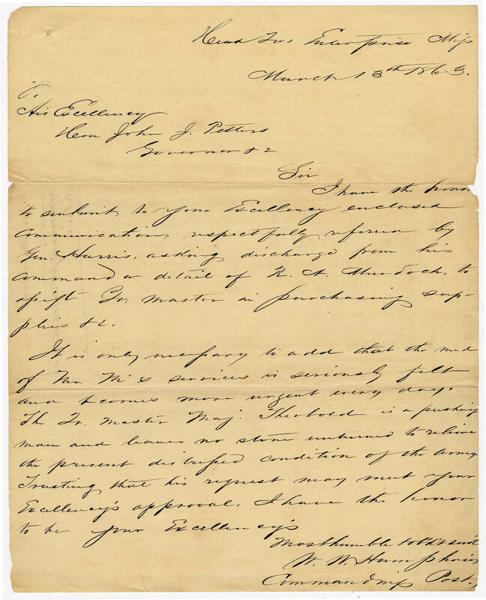 Head Qrs Enterprise Miss
March 13th 1863.
To
His Excellency
Hon John J. Pettus
Governor &c
Sir
I have the honor
to submit to your Excellency enclosed
communication, respectfully refered by
Gen. Harris, asking discharge from his
command or detail of R. A. Murdock, to
assist Qr. Master in purchasing sup-
plies &c.
It is only necessary to add that the need
of Mr. M's services is seriously felt
and becomes more urgent every day.
The Qr. Master Maj. Theobold is a pushing
man and leaves no stone unturned to relieve
the present distressed condition of the army.
Trusting that his request may meet your
Excellency's approval. I have the honor
to be your Excellency's
Most humble obdt servt
W. W. Humphries
Commanding Post.